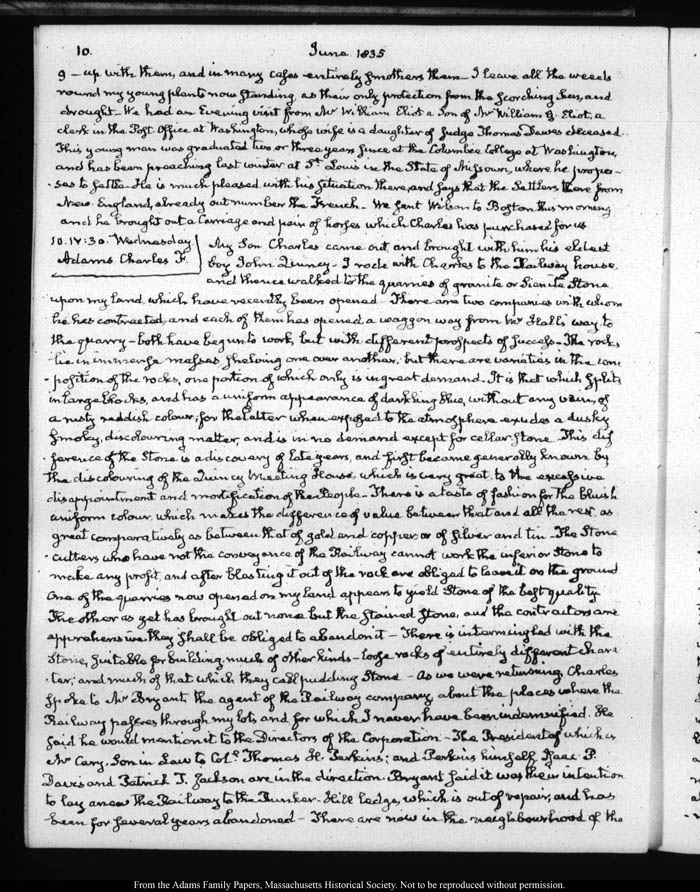 10.
June 1835
9 — up with them, and in many cases entirely smothers them — I leave all the weeds
round my young plants now standing, as their only protection from the scorching Sun, and
drought — We had an Evening visit from Mr William Eliot a Son of Mr William G. Eliot, a
clerk in the Post Office at Washington, whose wife is a daughter of Judge Thomas Dawes deceased.
This young man was graduated two or three years since at the Columbia College at Washington,
and has been preaching last winter at St Louis in the State of Missouri, where he propo-
-ses to settle. He is much pleased with his situation there, and says that the Settlers there from
New-England, already out number the French — We sent Wilson to Boston this morning
and he brought out a Carriage and pair of horses which Charles has purchased for us
10. IV:30. Wednesday
Adams Charles F.
My Son Charles came out and brought with him his eldest
boy John Quincy — I rode with Charles to the Railway house,
and thence walked to the quarries of granite or Sienite Stone
upon my land, which have recently been opened — There are two companies with whom
he has contracted, and each of them has opened a waggon way from Mr Hall's way to
the quarry — both have begun to work, but with different prospects of success — The rocks
lie in immense masses, shelving one over another, but there are varieties in the com
-position of the rocks, one portion of which only is in great demand — It is that which splits
in large blocks, and has a uniform appearance of dark line blue, without any veins, of
a rusty reddish colour; for the latter when exposed to the atmosphere exudes a dusky
smoky, discolouring matter, and is in no demand except for cellar Stone. This dif
-ference of the Stone is a discovery of late years, and first became generally known by
the discolouring of the Quincy Meeting House, which is very great, to the excessive
disappointment and mortification of the People — There is a taste of fashion for the bluish
uniform colour, which makes the difference of value between that and all the rest, as
great comparatively as between that of gold and copper or of silver and tin — The Stone
-cutters who have not the conveyance of the Railway cannot work the inferior Stone to
make any profit, and after blasting it out of the rock are obliged to leave it on the ground
One of the quarries now opened on my land appears to yield Stone of the best quality
The other as yet has brought out none but the stained Stone, and the contractors are
apprehensive they shall be obliged to abandon it — There is intermingled with the
Stone, suitable for building, much of other kinds — loose rocks of entirely different chara
-ter; and much of that which they call pudding Stone — As we were returning, Charles
spoke to Mr Bryant, the agent of the Railway company, about the places where the
Railway passes through my lots, and for which I never have been indemnified. He
said he would mention it to the Directors of the Corporation — The President of which is
Mr Cary, Son in Law to Col. Thomas H. Perkins; and Perkins himself, Isaac P.
Davis and Patrick T. Jackson are in the direction. Bryant said it was their intention
to lay anew the Railway to the Bunker-Hill ledge, which is out of repair, and has
been for several years abandoned — There are now in the neighbourhood of the
From the Adams Family Papers, Massachusetts Historical Society. Not to be reproduced without permission.